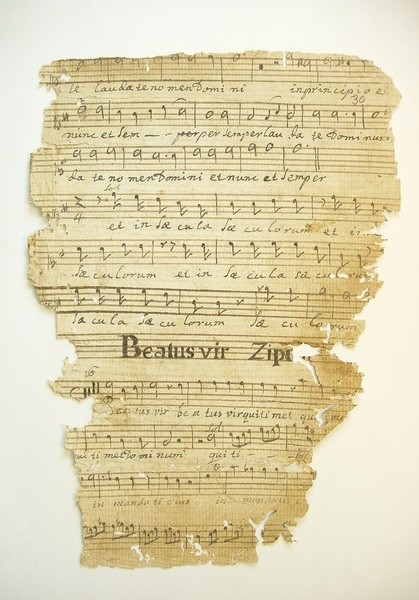 te laudate nomen Domini in principio et
30
nunc et sem - - per per semper lau da te Dominum
da te nomen Domini et nunc et semper
Sol
et in sæ cu la sæ cu lorum et in
sæ culorum et in sæ cu la sæ culoru
sæ cula sæ cu lorum sæ cu lorum
Beatus vir Zipo
16
Beatus vir be a tus vir qui ti met qui
Sol
ti met Do mi num qui ti
in manda tis eius in mandatis